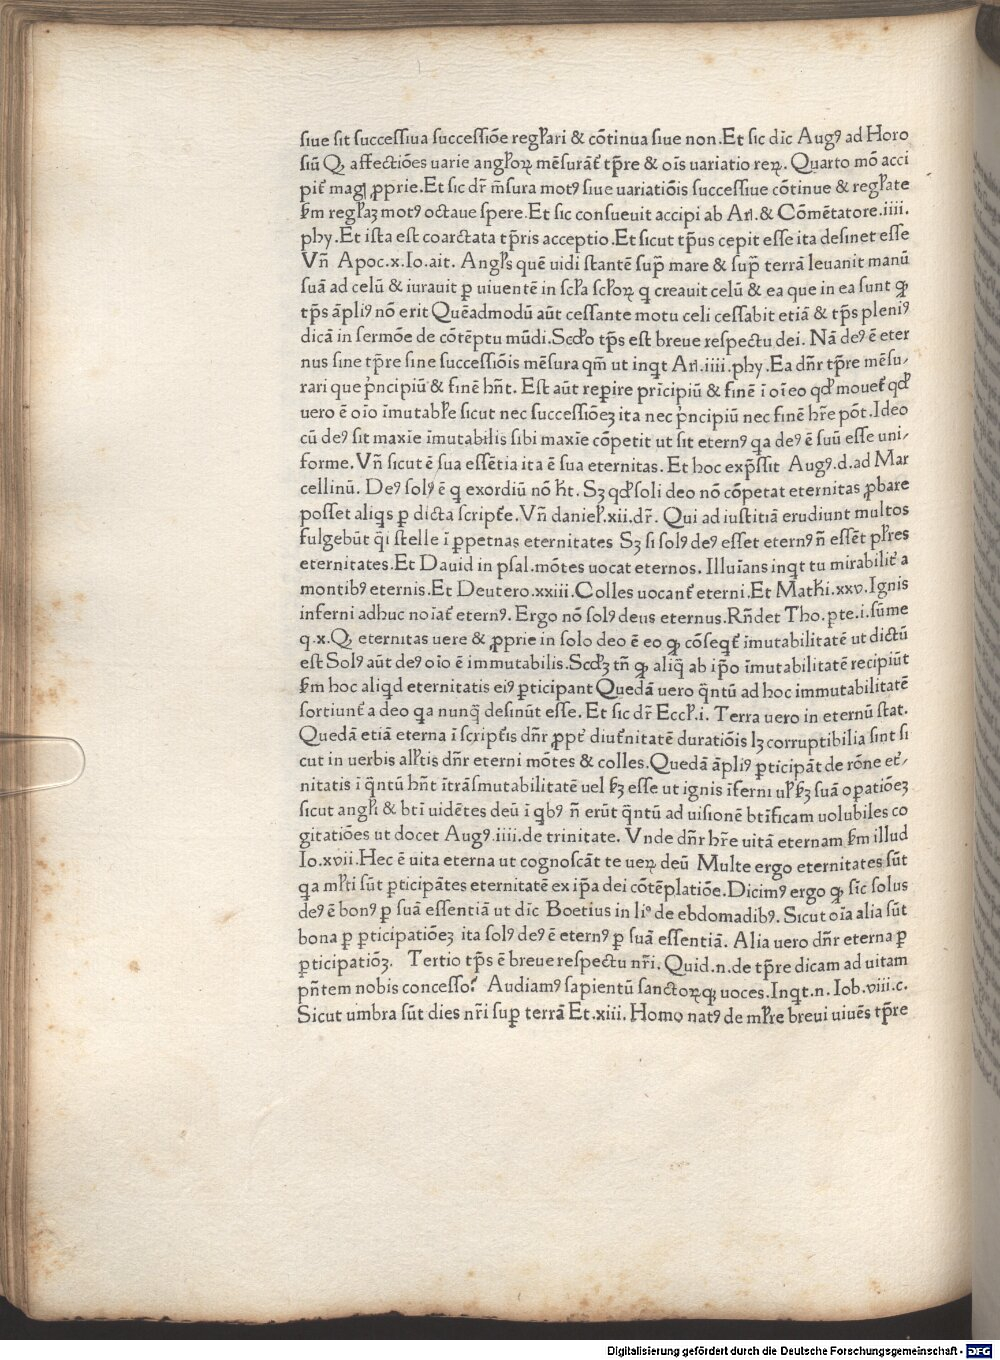 siue sit successiua successiõe regl̃ari & cõtinua siue non.Et sic dic̃ Augꝰ ad Horo
siũ Qꝫ affectiões uarie angl̃oꝝ mẽsurãt᷑ tp̃re & oĩs uariatio reꝝ. Quarto mõ acci
pit᷑ magĩ ꝓprie.Et sic dr̃ m̃sura motꝰ siue uariatiõis successiue cõtinue & regl̃ate
ẜm regl̃aꝫ motꝰ octaue spere.Et sic consueuit accipi ab Arĩ.& Cõmẽtatore.iiii.
phy.Et ista est coarctata tp̃ris acceptio.Et sicut tp̃us cepit esse ita desinet esse
Vñ Apoc.x.Io.ait. Angl̃s quẽ uidi stantẽ supꝛ̃ mare & supꝛ̃ terrã leuanit manũ
suã ad celũ & iurauit ꝑ uiuentẽ in scl̃a scl̃oꝝ q creauit celũ & ea que in ea sunt ꝙ
tp̃s ãpliꝰ nõ erit Quẽadmodũ aũt cessante motu celi cessabit etiã & tp̃s pleniꝰ
dicã in sermõe de cõtẽptu mũdi.Scd̃o tp̃s est breue respectu dei. Nã deꝰ ẽ eter
nus sine tp̃re sine successiõis mẽsura qm̃ ut inqt Arĩ.iiii.phy.Ea dñr tp̃re mẽsu⸗
rari que pͥncipiũ & finẽ hñt. Est aũt reꝑire pͥrcipiũ & finẽ ĩ oĩ eo qd̃ mouet᷑ qd̃
uero ẽ oĩo ĩmutabl̃e sicut nec successiõeꝫ ita nec pͥncipiũ nec finẽ hr̃e põt.Ideo
cũ deꝰ sit maxĩe ĩmutabilis sibi maxĩe cõpetit ut sit eternꝰ qa deꝰ ẽ suũ esse uni⸗
forme.Vñ sicut ẽ sua essẽtia ita ẽ sua eternitas. Et hoc exp̃ssit Augꝰ.d.ad Mar
cellinũ. Deꝰ solꝰ ẽ q exordiũ nõ h̃t. Sꝫ qd̃ soli deo nõ cõpetat eternitas ꝓbare
posset aliqs ꝑ dicta script᷑e.Vñ daniel̃.xii.dr̃. Qui ad iustitiã erudiunt multos
fulgebũt qͥi stelle ĩ ꝑpetnas eternitates Sꝫ si solꝰ deꝰ esset eternꝰ ñ essẽt pl̃res
eternitates.Et Dauid in psal.mõtes uocat eternos. Illuĩans inqt tu mirabilit᷑ a
montibꝰ eternis.Et Deutero.xxiii.Colles uocant᷑ eterni.Et Math̃i.xxv.Ignis
inferni adhuc noĩat᷑ eternꝰ. Ergo nõ solꝰ deus eternus.Rñdet Tho.pte.i.sũme
q.x.Qꝫ eternitas uere & ꝓprie in solo deo ẽ eo ꝙ cõseqt᷑ ĩmutabilitatẽ ut dictũ
est Solꝰ aũt deꝰ oĩo ẽ immutabilis.Scd̃ꝫ tñ ꝙ aliq̃ ab ip̃o ĩmutabilitatẽ recipiũt
ẜm hoc aliqd eternitatis eiꝰ ꝑticipant Quedã uero q̃ntũ ad hoc immutabilitatẽ
sortiunt᷑ a deo qa nunq̃ desinũt esse. Et sic dr̃ Eccl̃.i. Terra uero in eternũ stat.
Quedã etiã eterna ĩ script᷑is dñr ꝓpt᷑ diut᷑nitatẽ duratiõis lꝫ corruptibilia sint si
cut in uerbis all̃tis dñr eterni mõtes & colles.Quedã ãpliꝰ ꝑticipãt de rõne et᷑⸗
nitatis ĩ q̃ntũ hñt ĩtrãsmutabilitatẽ uel ẜꝫ esse ut ignis ĩferni ul̃ ẜꝫ suã oꝑatiõeꝫ
sicut angl̃i & bt̃i uidẽtes deũ ĩ qbꝰ ñ erũt q̃ntũ ad uisionẽ bt̃ificam uolubiles co
gitatiões ut docet Augꝰ.iiii.de trinitate. Vnde dñr hr̃e uitã eternam ẜm illud
Io.xvii.Hec ẽ uita eterna ut cognoscãt te ueꝝ deũ Multe ergo eternitates sũt
qa ml̃ti sũt ꝑticipãtes eternitatẽ ex ip̃a dei cõtẽplatiõe.Dicimꝰ ergo ꝙ sic̃ solus
deꝰ ẽ bonꝰ ꝑ suã essentiã ut dic̃ Boetius in liº de ebdomadibꝰ. Sicut oĩa alia sũt
bona ꝑ ꝑticipatiõeꝫ ita solꝰ deꝰ ẽ eternꝰ ꝑ suã essentiã. Alia uero dñr eterna ꝑ
ꝑticipatiõꝫ. Tertio tp̃s ẽ breue respectu nr̃i. Quid.n.de tp̃re dicam ad uitam
pñtem nobis concesso? Audiamꝰ sapientũ sanctoꝝqꝫ uoces.Inqt.n. Iob.viii.c.
Sicut umbra sũt dies nr̃i supꝛ̃ terrã Et.xiii. Homo natꝰ de ml̃re breui uiuẽs tp̃re
Digitalisierung gefördert durch die Deutsche Forschungsgemeinschaft - DFG